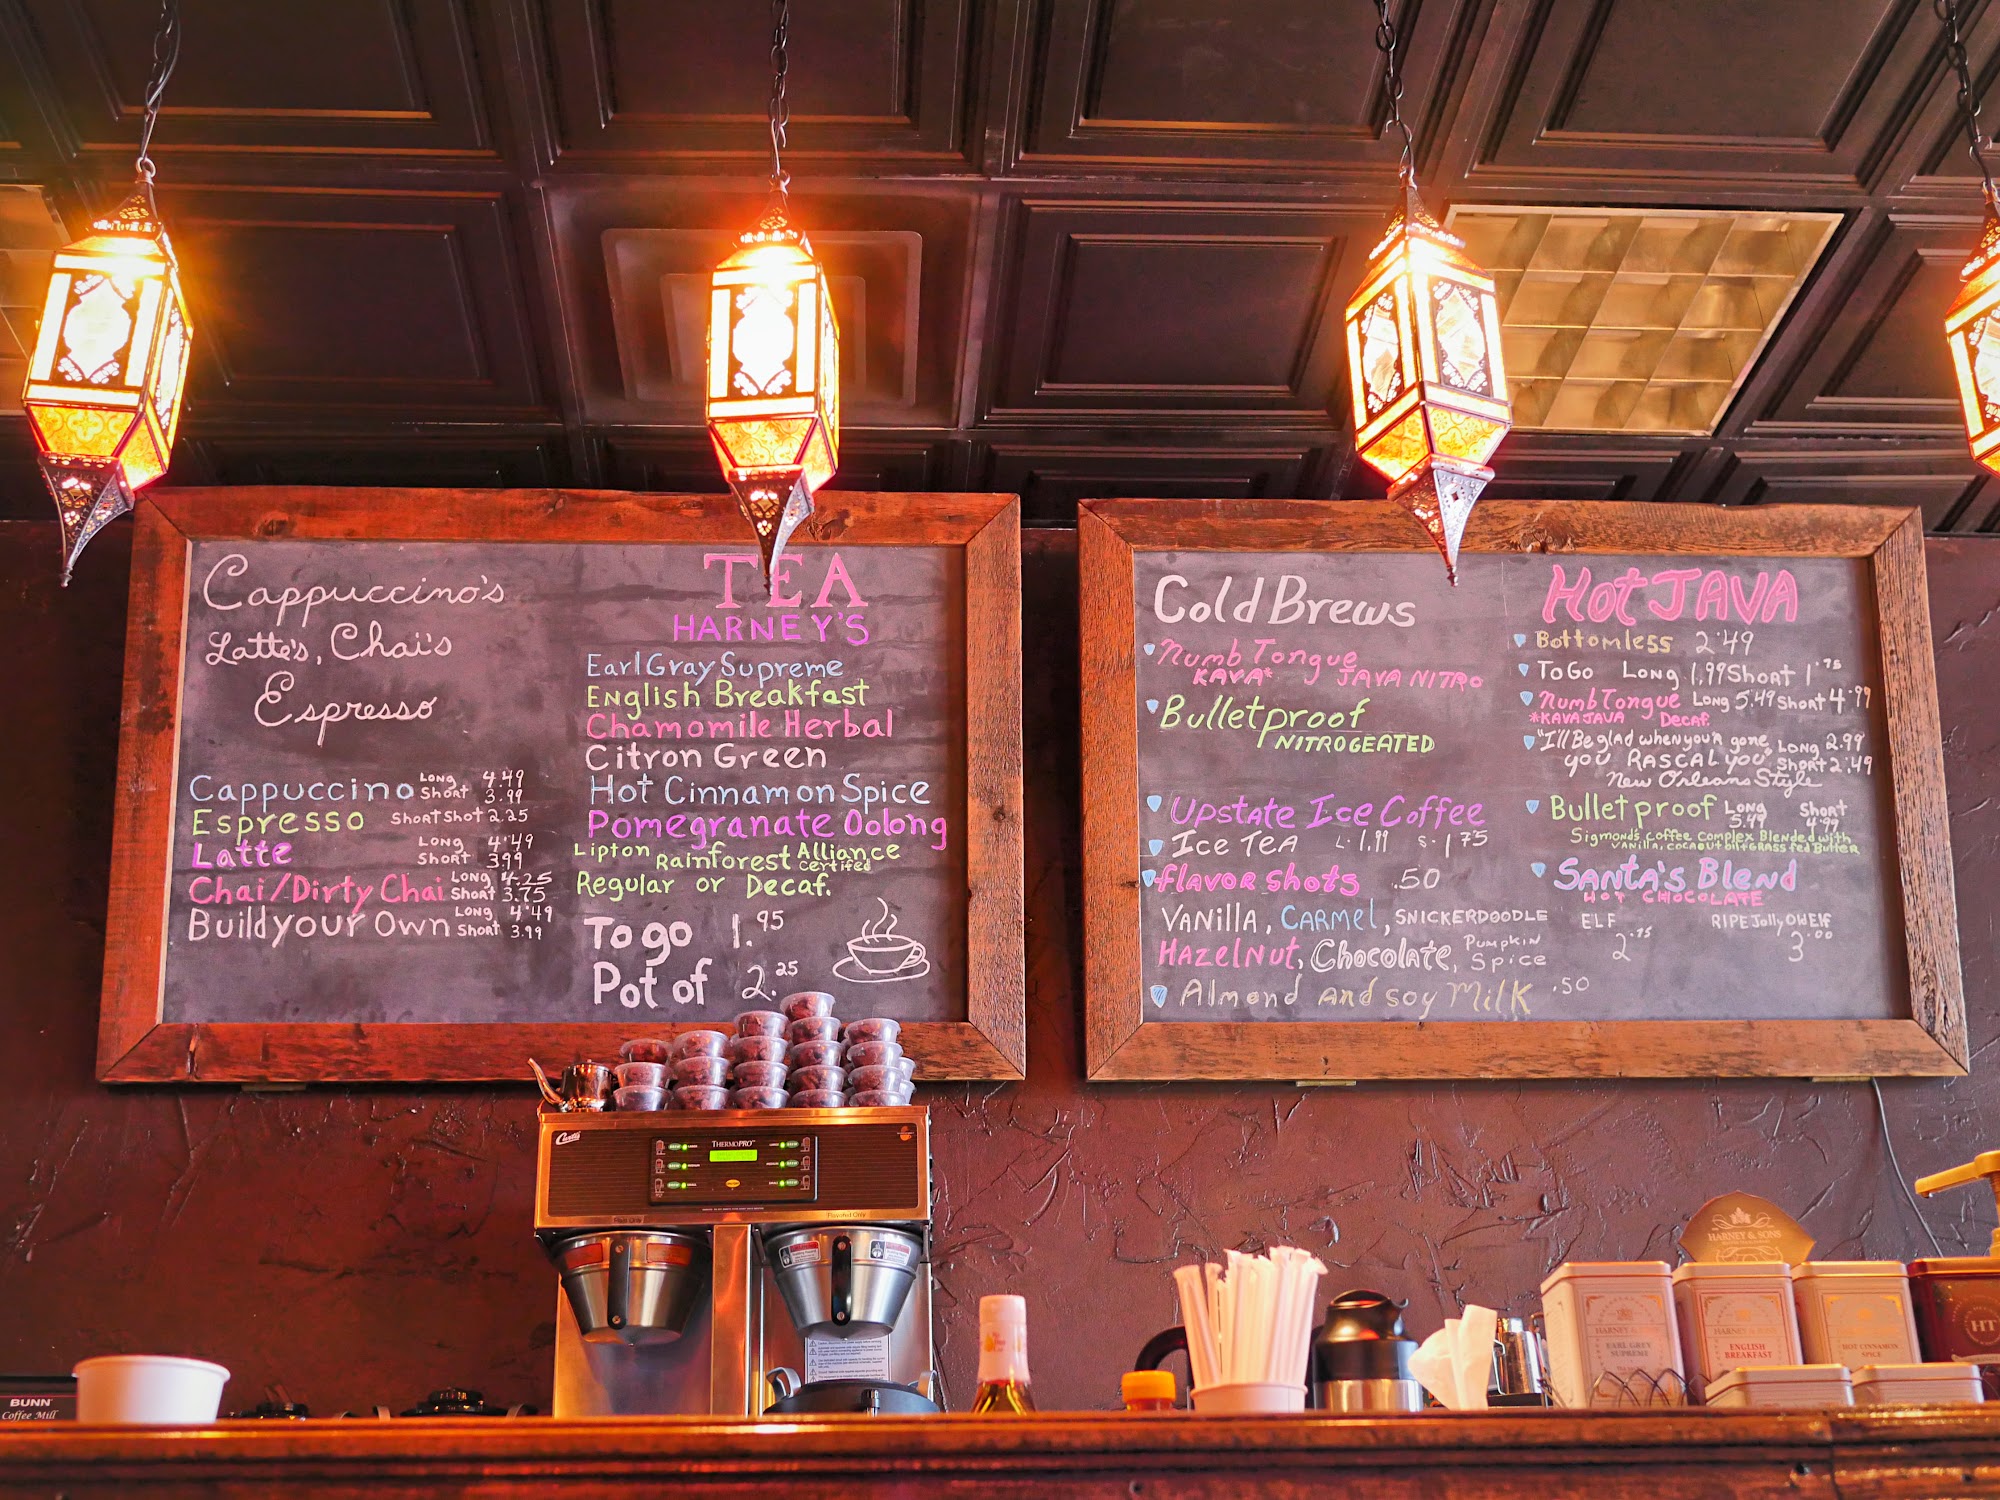 Cappuccino's
Latte's, Chai's
Espresso
Cappuccino Long 4.49
Short 3.99
Espresso Short Shot 2.25
Latte Long 4.49
Short 399
Chai/Dirty Chai Long 4.25
Short 3.75
Build your Own Long 4.49
Short 3.99
TEA
HARNEY'S
Earl Gray Supreme
English Breakfast
Chamomile Herbal
Citron Green
Hot Cinnamon Spice
Pomegranate Oolong
Lipton Rainforest Alliance
Certified
Regular or Decaf.
To go 1.95
Pot of 2.25
Cold Brews
Numb Tongue
KAVA* JAVA NITRO
Bulletproof
NITROGEATED
Upstate Ice Coffee
Ice TEA L. 1.99 S. 1.75
flavor shots .50
VANILLA, CARMEL, SNICKERDOODLE
HAZELNUT, Chocolate, Pumpkin
Spice
Almond and soy Milk .50
Hot JAVA
Bottomless 2.49
To Go Long 1.99 Short 1.75
Numb Tongue Long 5.49 Short 4.99
*KAVA JAVA Decaf.
"I'll Be glad when you'r gone Long 2.99
you RASCAL you" Short 2.49
New Orleans Style
Bulletproof Long Short
5.49 4.99
Sigmond's Coffee Complex Blended with
Vanilla, Cocaout oil + GRASS fed Butter
SANTA'S Blend
HOT CHOCOLATE
ELF RIPE Jolly Old Elf
2.75 3.00
Curtis
THERMOPRO
Flavored Only
BUNN
Coffee Mill
HARNEY & SONS
HARNEY & SONS
EARL GREY
SUPREME
HARNEY & SONS
ENGLISH
BREAKFAST
HARNEY & SONS
HOT CINNAMON
SPICE
HT